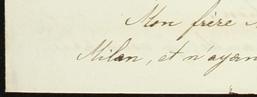 Mon frère
Milan, et n'ayan